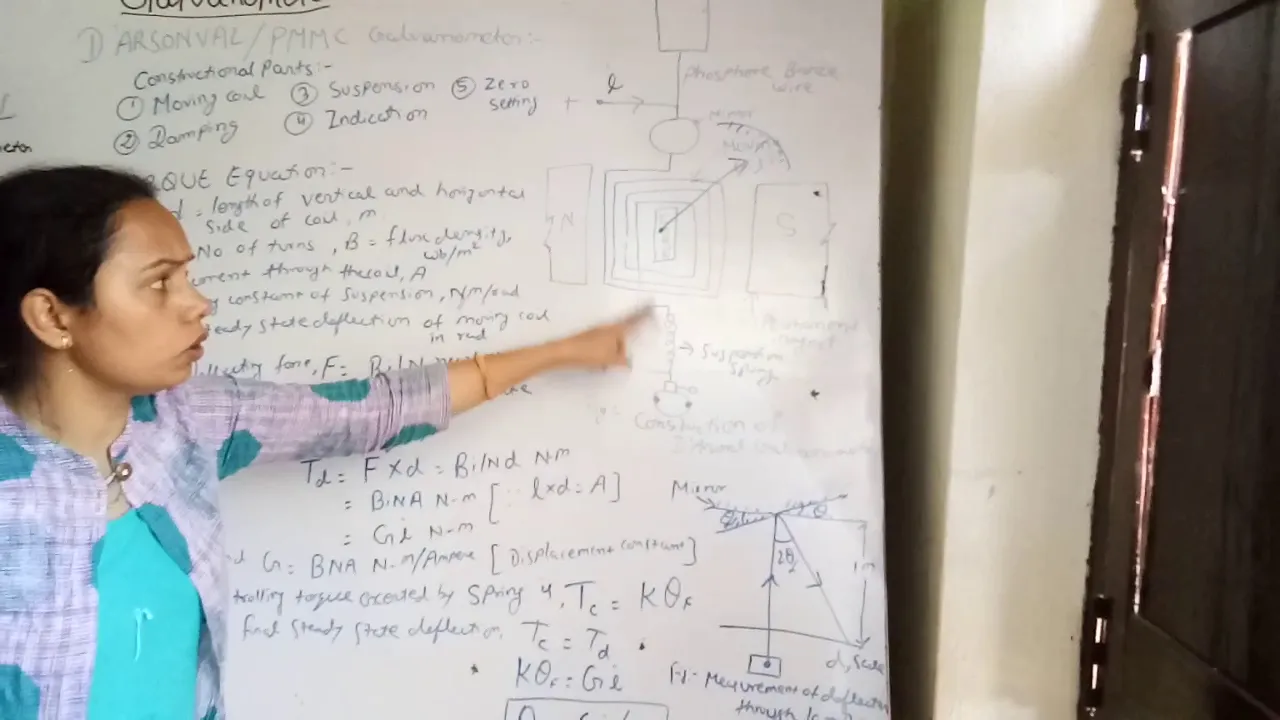 Galvanometer
D'ARSONVAL/PMMC Galvanometer:-
Constructional Parts:-
① Moving coil ③ Suspension ⑤ Zero setting
② Damping ④ Indication
Equation:-
d = length of vertical and horizontal
side of coil, m
No of turns, B = flux density,
wb/m²
through the coil, A
constant of suspension, Nm/rad
steady state deflection of moving coil
in rad
force, F = BilN
Td = F×d = BilNd N-m
= BiNA N-m [∵ l×d = A]
= Gi N-m
G = BNA N-m/Ampere [Displacement constant]
torque created by spring 4, Tc = Kθf
final steady state deflection, Tc = Td
Kθf = Gi
Phosphore Bronze
wire
+ i
Mirror
N
S
Permanent
magnet
→ Suspension
Spring
Construction of
Mirror
θ
θ
2θ
1m
d, scale
Measurement of deflection
through